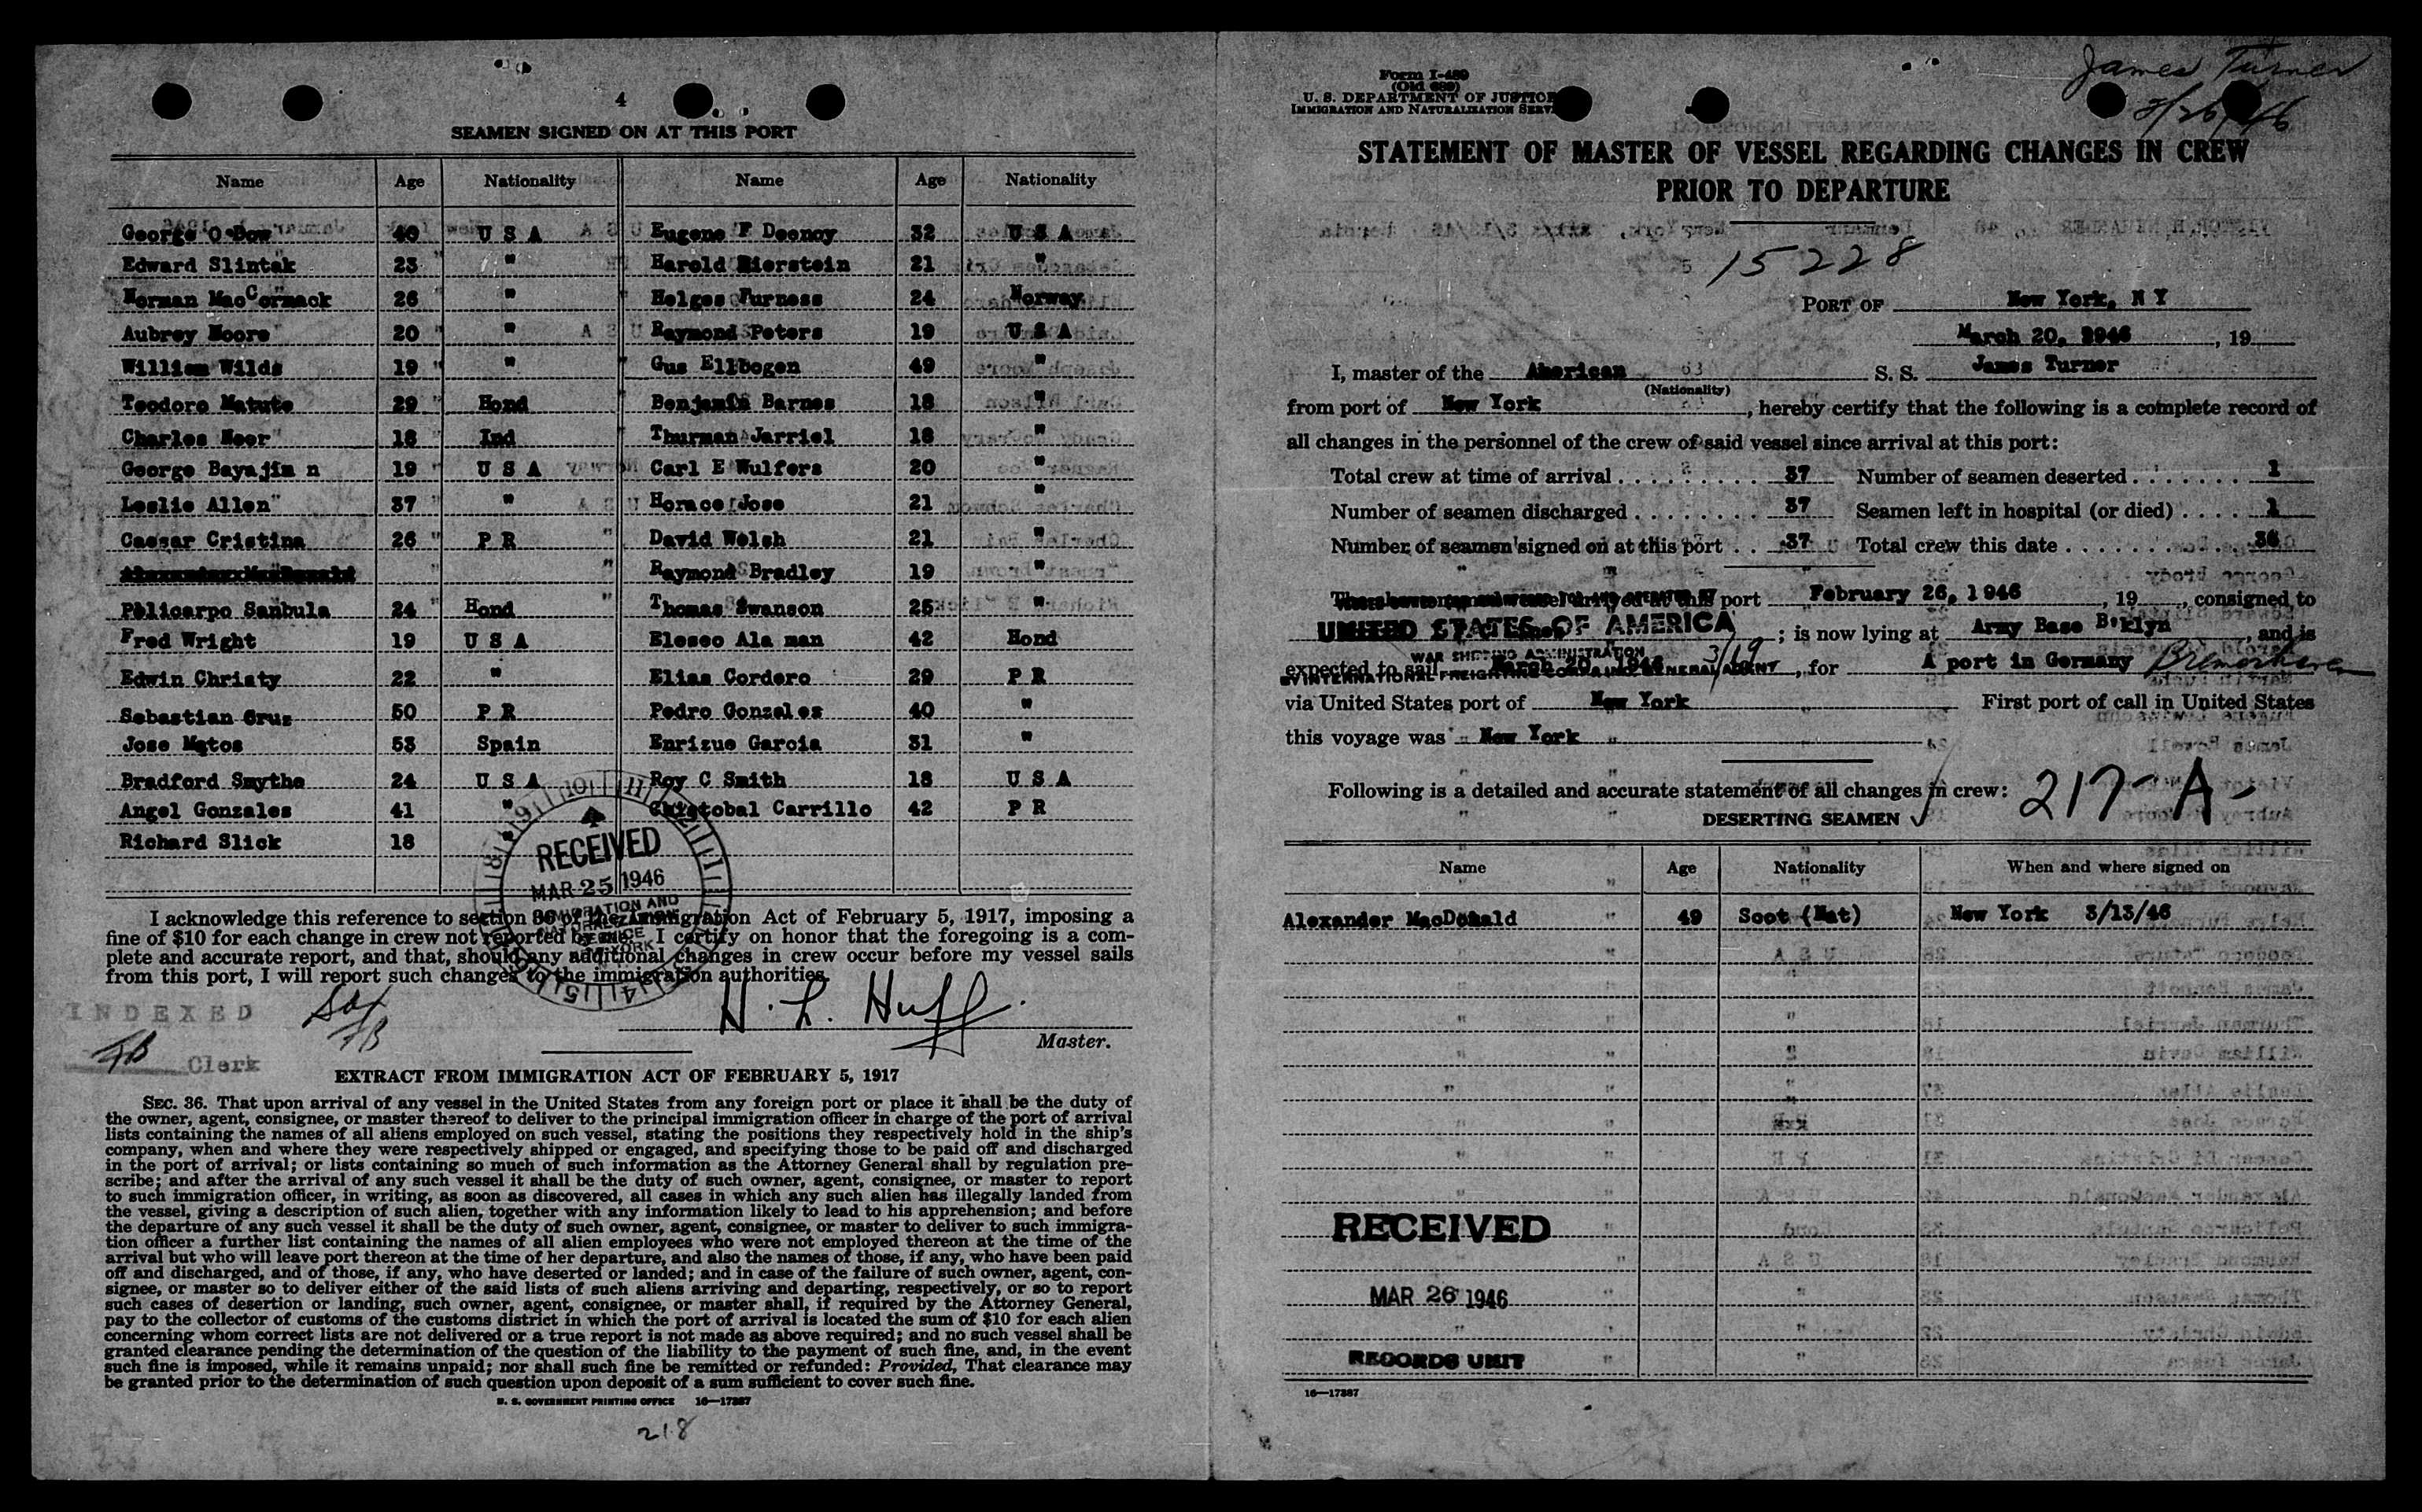 4
SEAMEN SIGNED ON AT THIS PORT
Name Age Nationality Name Age Nationality
George O Dow 40 U S A Eugene F Deenoy 32 U S A
Edward Slintak 23 " Harold Bierstein 21 "
Norman MacCormack 26 " Helges Furness 24 Norway
Aubrey Moore 20 " Raymond Peters 19 U S A
William Wilds 19 " Gus Ellbogen 49 "
Teodoro Matute 29 Hond Benjamin Barnes 18 "
Charles Neer 18 Ind Thurman Jarriel 18 "
George Bayajia n 19 U S A Carl E Wulfers 20 "
Leslie Allen 37 " Horace Jose 21 "
Caesar Cristina 26 P R David Welsh 21 "
Raymond Bradley 19 "
Policarpo Sanbula 24 Hond Thomas Swanson 25 "
Fred Wright 19 U S A Eleseo Ala man 42 Hond
Edwin Christy 22 " Elias Cordero 29 P R
Sebastian Cruz 50 P R Pedro Gonzales 40 "
Jose Matos 53 Spain Enrizue Garcia 31 "
Bradford Smythe 24 U S A Roy C Smith 18 U S A
Angel Gonzales 41 " Christobal Carrillo 42 P R
Richard Slick 18 "
RECEIVED
MAR 25 1946
I acknowledge this reference to section 36 of the Immigration Act of February 5, 1917, imposing a
fine of $10 for each change in crew not reported by me. I certify on honor that the foregoing is a com-
plete and accurate report, and that, should any additional changes in crew occur before my vessel sails
from this port, I will report such changes to the immigration authorities.
INDEXED
H. L. Huff
Master.
FB Clerk
EXTRACT FROM IMMIGRATION ACT OF FEBRUARY 5, 1917
SEC. 36. That upon arrival of any vessel in the United States from any foreign port or place it shall be the duty of
the owner, agent, consignee, or master thereof to deliver to the principal immigration officer in charge of the port of arrival
lists containing the names of all aliens employed on such vessel, stating the positions they respectively hold in the ship's
company, when and where they were respectively shipped or engaged, and specifying those to be paid off and discharged
in the port of arrival; or lists containing so much of such information as the Attorney General shall by regulation pre-
scribe; and after the arrival of any such vessel it shall be the duty of such owner, agent, consignee, or master to report
to such immigration officer, in writing, as soon as discovered, all cases in which any such alien has illegally landed from
the vessel, giving a description of such alien, together with any information likely to lead to his apprehension; and before
the departure of any such vessel it shall be the duty of such owner, agent, consignee, or master to deliver to such immigra-
tion officer a further list containing the names of all alien employees who were not employed thereon at the time of the
arrival but who will leave port thereon at the time of her departure, and also the names of those, if any, who have been paid
off and discharged, and of those, if any, who have deserted or landed; and in case of the failure of such owner, agent, con-
signee, or master so to deliver either of the said lists of such aliens arriving and departing, respectively, or so to report
such cases of desertion or landing, such owner, agent, consignee, or master shall, if required by the Attorney General,
pay to the collector of customs of the customs district in which the port of arrival is located the sum of $10 for each alien
concerning whom correct lists are not delivered or a true report is not made as above required; and no such vessel shall be
granted clearance pending the determination of the question of the liability to the payment of such fine, and, in the event
such fine is imposed, while it remains unpaid; nor shall such fine be remitted or refunded: Provided, That clearance may
be granted prior to the determination of such question upon deposit of a sum sufficient to cover such fine.
U. S. GOVERNMENT PRINTING OFFICE 16—17387
218
Form I-489
(Old 689)
U. S. DEPARTMENT OF JUSTICE
IMMIGRATION AND NATURALIZATION SERV
James Turner
3/26/46
STATEMENT OF MASTER OF VESSEL REGARDING CHANGES IN CREW
PRIOR TO DEPARTURE
15228
PORT OF New York, N Y
March 20, 1946, 19
I, master of the American S. S. James Turner
(Nationality)
from port of New York, hereby certify that the following is a complete record of
all changes in the personnel of the crew of said vessel since arrival at this port:
Total crew at time of arrival 37 Number of seamen deserted 1
Number of seamen discharged 37 Seamen left in hospital (or died) 1
Number of seamen signed on at this port 37 Total crew this date 36
port February 26, 1946, 19, consigned to
UNITED STATES OF AMERICA; is now lying at Army Base B'klyn, and is
WAR SHIPPING ADMINISTRATION
expected to sail March 20, 1946 3/19, for A port in Germany Bremerhaven
BY INTERNATIONAL FREIGHTING CORP. INC. GENERAL AGENT
via United States port of New York First port of call in United States
this voyage was New York
Following is a detailed and accurate statement of all changes in crew: 217-A-
DESERTING SEAMEN ✓
Name Age Nationality When and where signed on
Alexander MacDonald 49 Scot (Nat) New York 3/13/46
RECEIVED
MAR 26 1946
RECORDS UNIT
16—17387